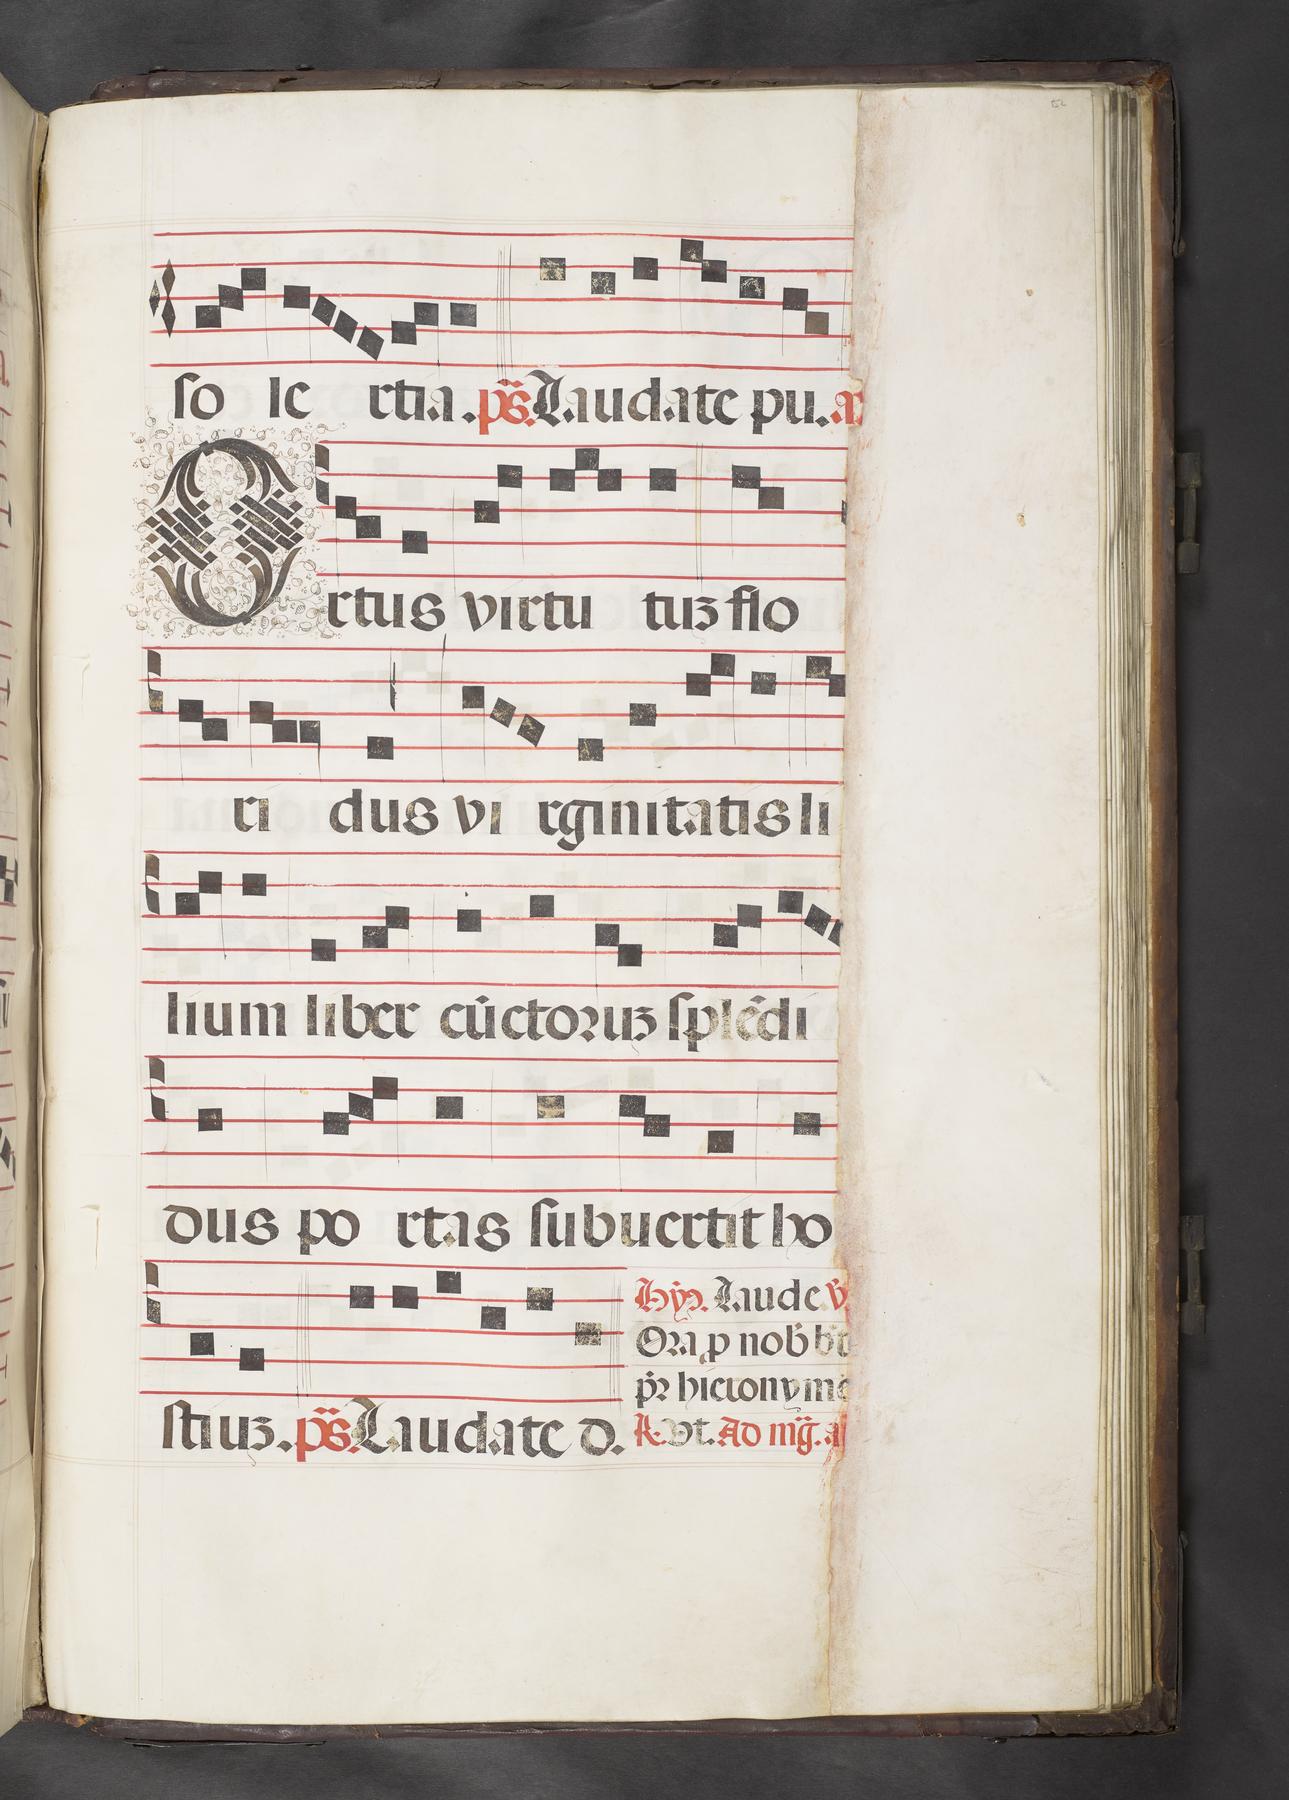 so le rtia. ps. Laudate pu. a
Ortus virtu tuȝ flo
ri dus vi rginitatis li
lium liber cūctoꝛuȝ splēdi
dus po rtas subuertit ho
stiuȝ. ps. Laudate d.
Hyꝰ. Laude v
Ora p nob b
pr hieronyme
R. Vt. Ad mg. a